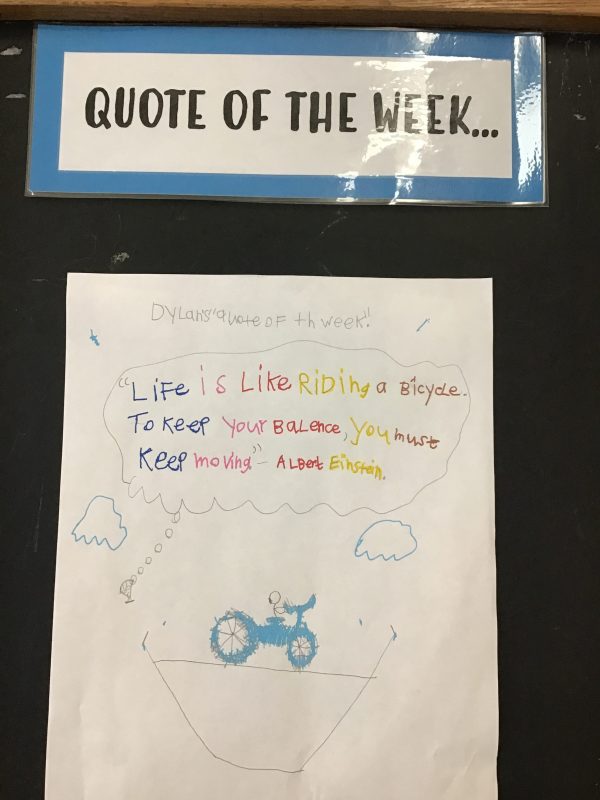 QUOTE OF THE WEEK...
DYLANS "quote OF th week!"
"LiFe is Like RiDing a Bicycle.
To Keep Your BaLence, You must
Keep moving" - ALBert Einstein.